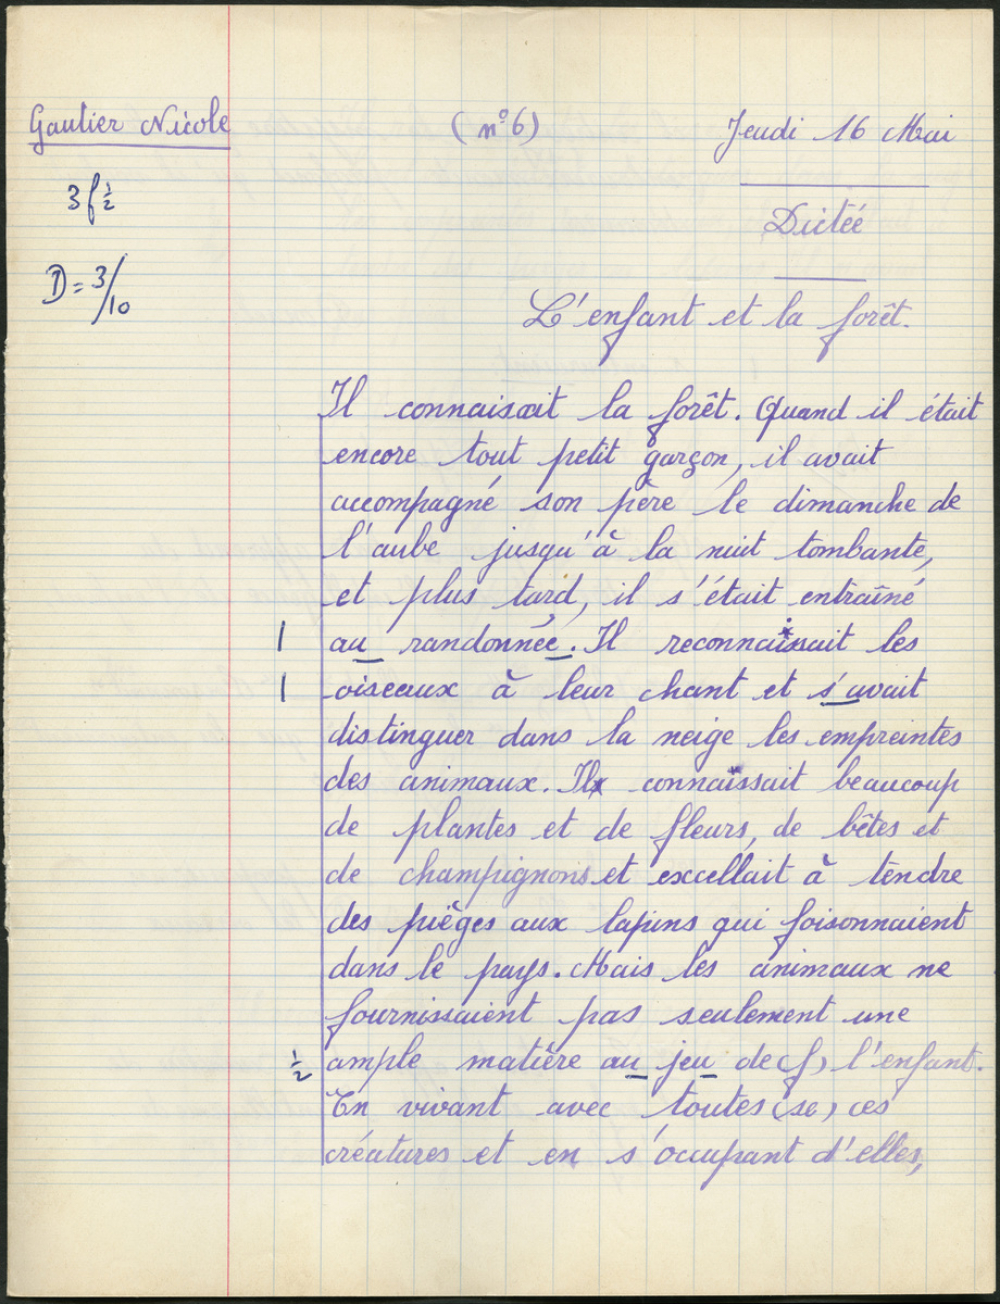 Gautier Nicole
(n°6)
Jeudi 16 Mai
3 f ½
Dictée
D = 3/10
L'enfant et la forêt.
Il connaisait la forêt. Quand il était
encore tout petit garçon, il avait
accompagné son père le dimanche de
l'aube jusqu'à la nuit tombante,
et plus tard, il s'était entraîné
1 au randonnée. Il reconnaissait les
1 oiseaux à leur chant et s'avait
distinguer dans la neige les empreintes
des animaux. Il connaissait beaucoup
de plantes et de fleurs, de bêtes et
de champignons et excellait à tendre
des pièges aux lapins qui foisonnaient
dans le pays. Mais les animaux ne
fournissaient pas seulement une
½ ample matière au jeu de (f) l'enfant.
En vivant avec toutes (se) ces
créatures et en s'occupant d'elles,